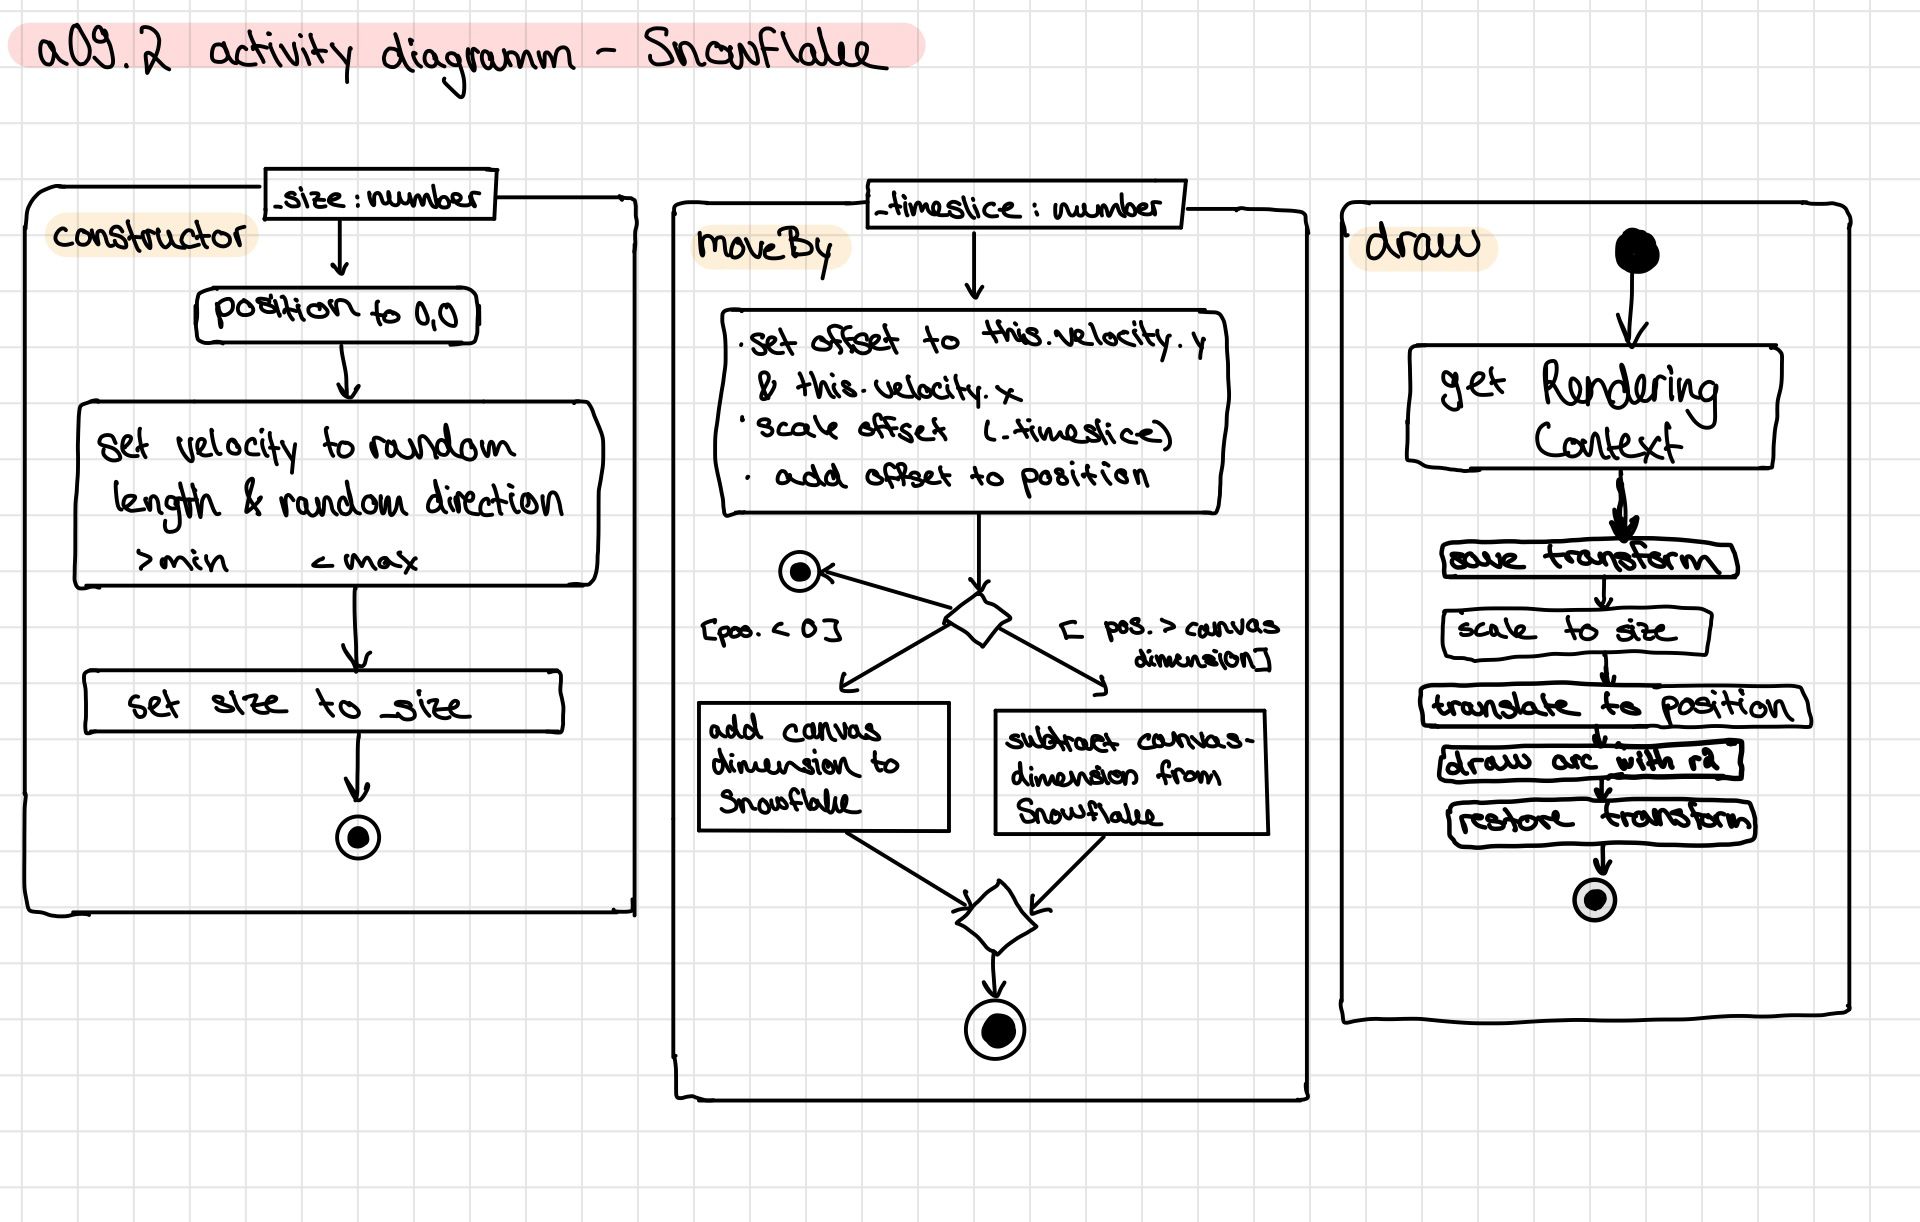 a09.2 activity diagramm - Snowflake
_size : number
constructor
position to 0,0
set velocity to random
length & random direction
>min <max
set size to _size
_timeslice : number
moveBy
· set offset to this.velocity.y
& this.velocity.x
· scale offset (_timeslice)
· add offset to position
[pos. < 0]
[ pos. > canvas
dimension]
add canvas
dimension to
Snowflake
subtract canvas-
dimension from
Snowflake
draw
get Rendering
Context
save transform
scale to size
translate to position
draw arc with r2
restore transform